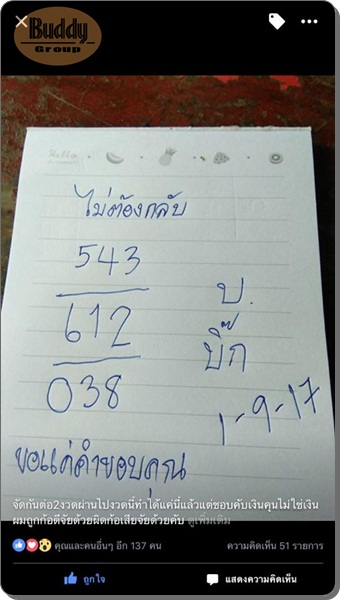 Buddy
Group
Hello
ไม่ต้องกลับ
543
612
038
บ.
บิ๊ก
1-9-17
ขอแค่คำขอบคุณ
จัดกันต่อ2งวดผ่านไปงวดนี้ทำได้แค่นี้แล้วแต่ชอบคับเงินคุนไม่ใช่เงิน
ผมถูกก้อดีจัยด้วยผิดก้อเสียจัยด้วยคับ ดูเพิ่มเติม
คุณและคนอื่นๆ อีก 137 คน
ความคิดเห็น 51 รายการ
ถูกใจ
แสดงความคิดเห็น